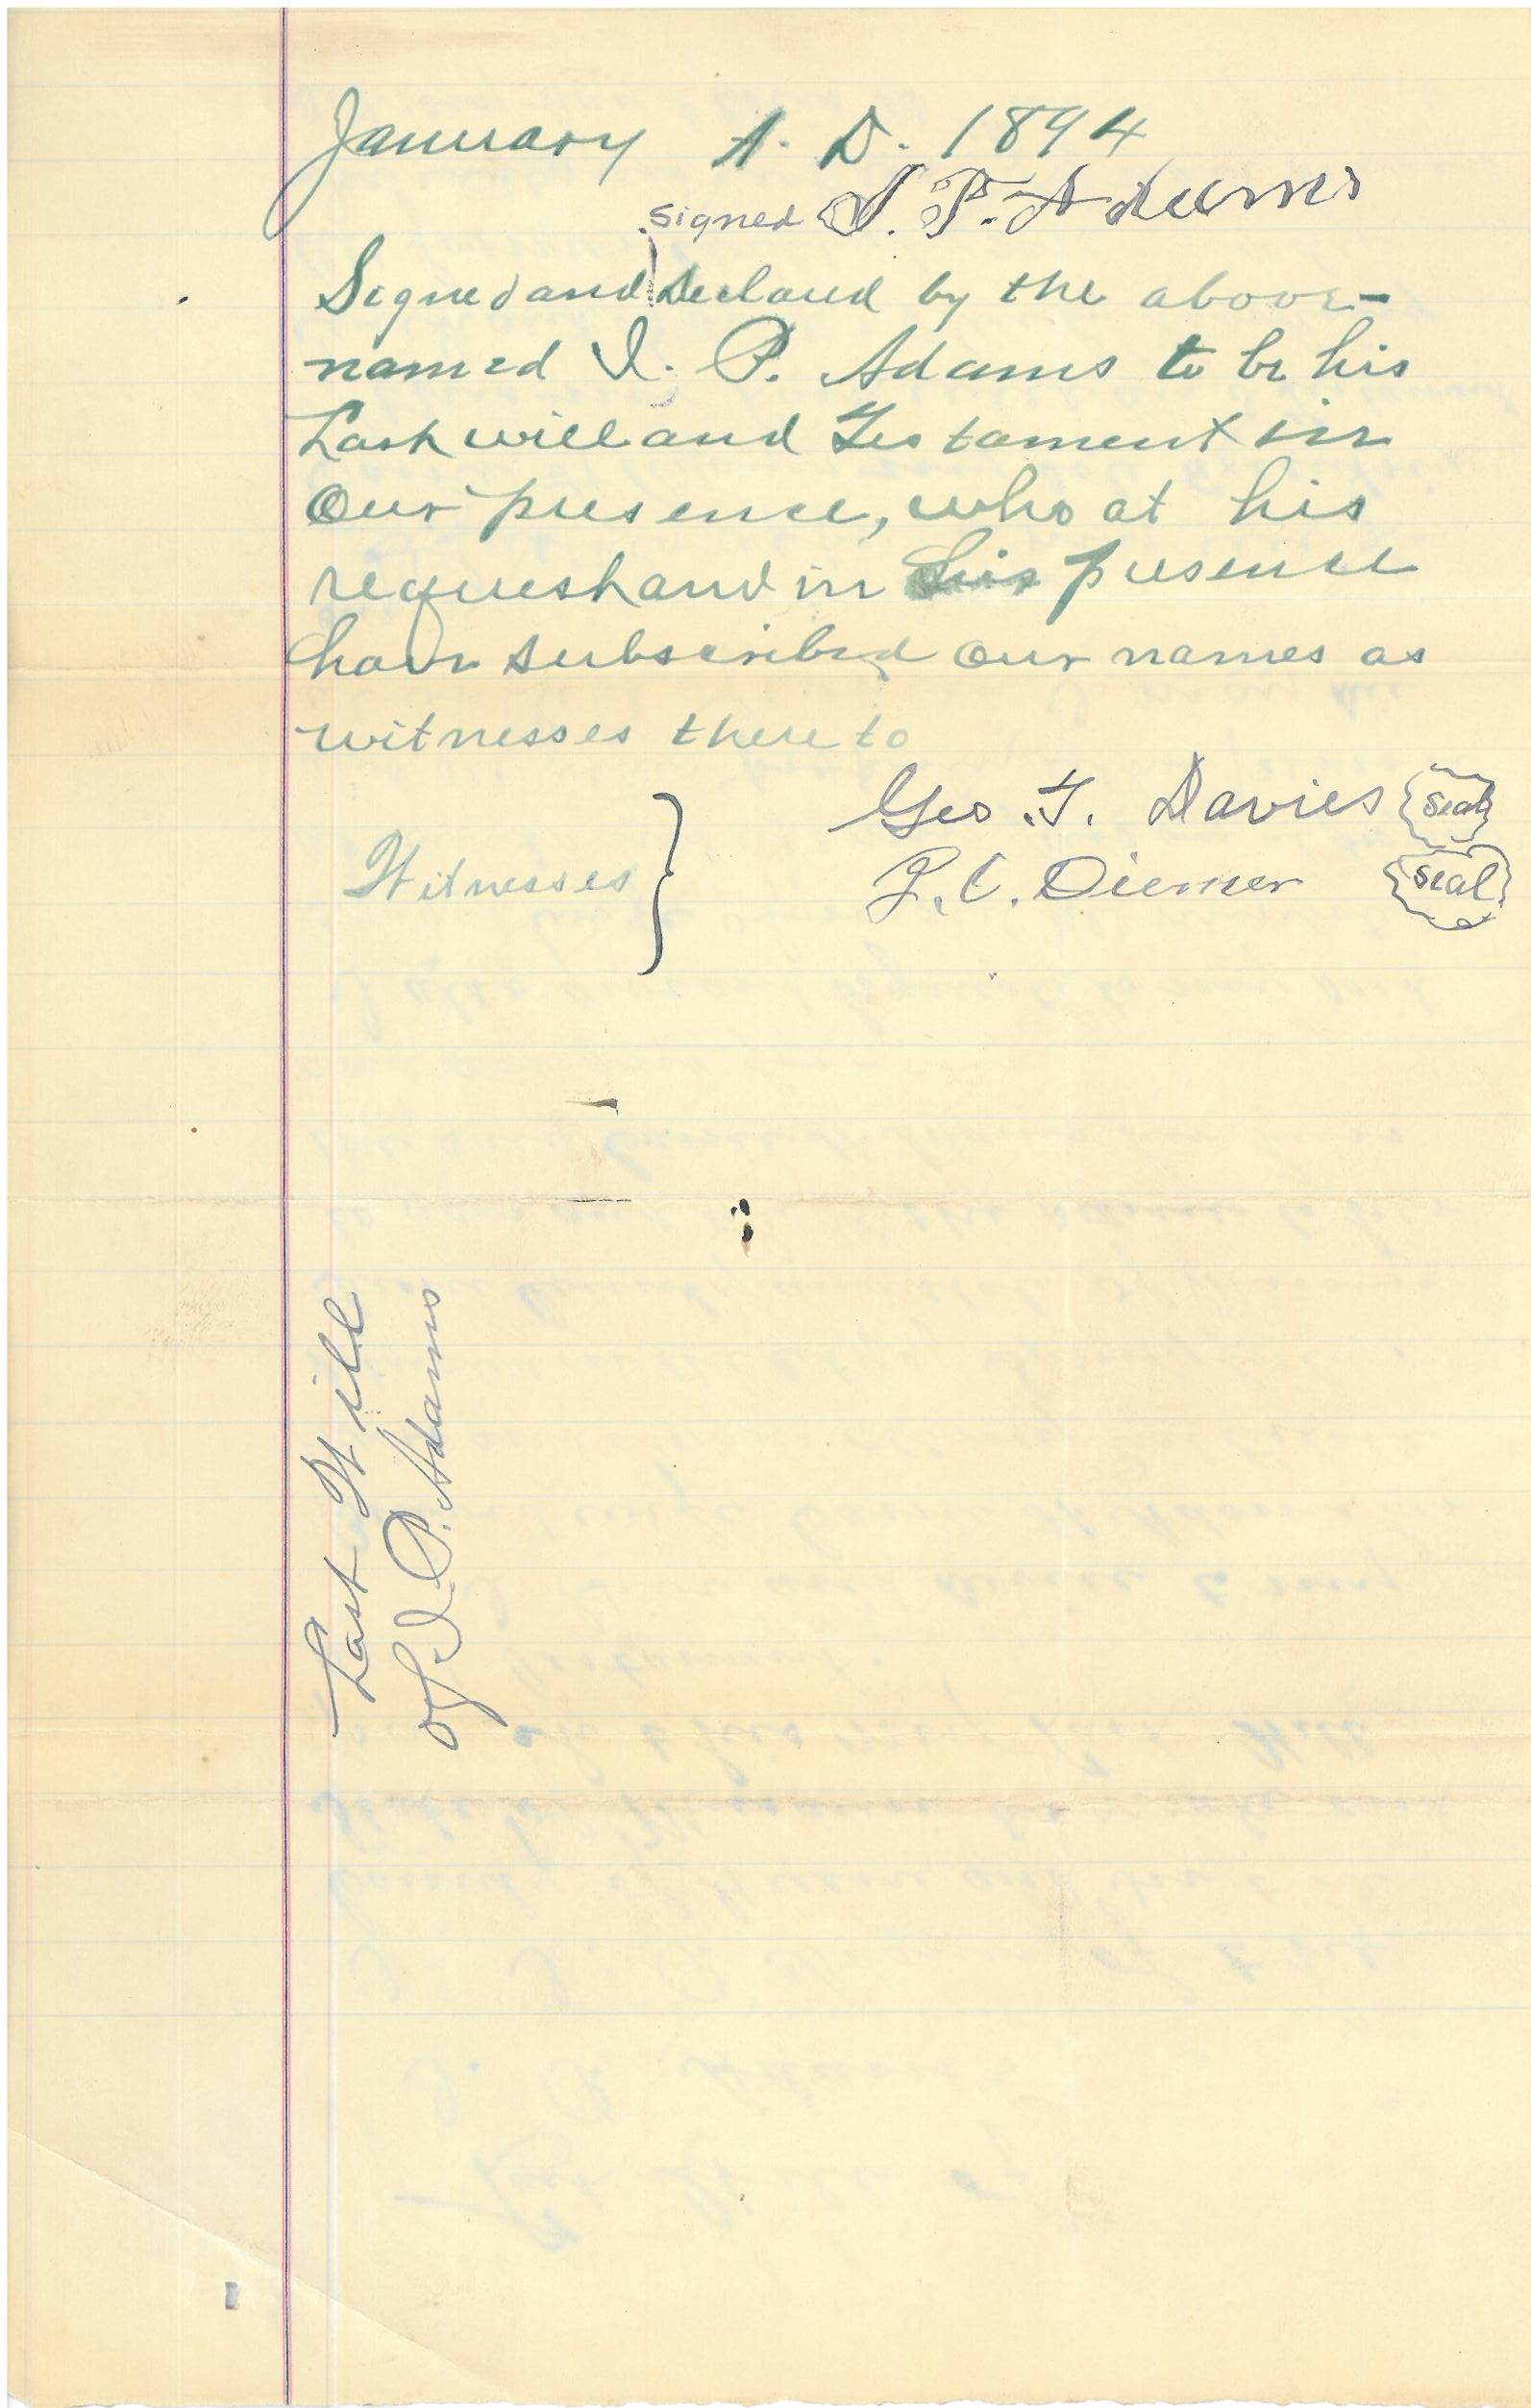 January A. D. 1894
signed I. P. Adams
Signed and declared by the above-
named I. P. Adams to be his
Last will and Testament in
our presence, who at his
request and in his presence
have subscribed our names as
witnesses thereto
Geo. T. Davies seal
Witnesses } J. C. Diemer seal
Last Will
of I. P. Adams